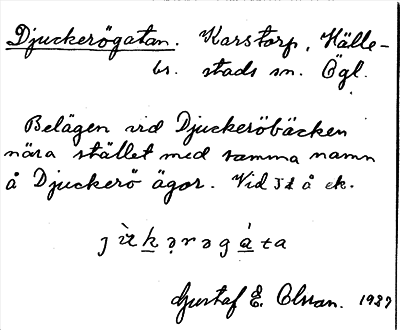 Djuckerögatan. Karstorp, Hälle-
bs. stads sn. Ögl.
Belägen vid Djuckeröbäcken
nära stället med samma namn
å Djuckerö ägor. Vid 1:2 å ek.
Gustaf E. Olsson. 1937